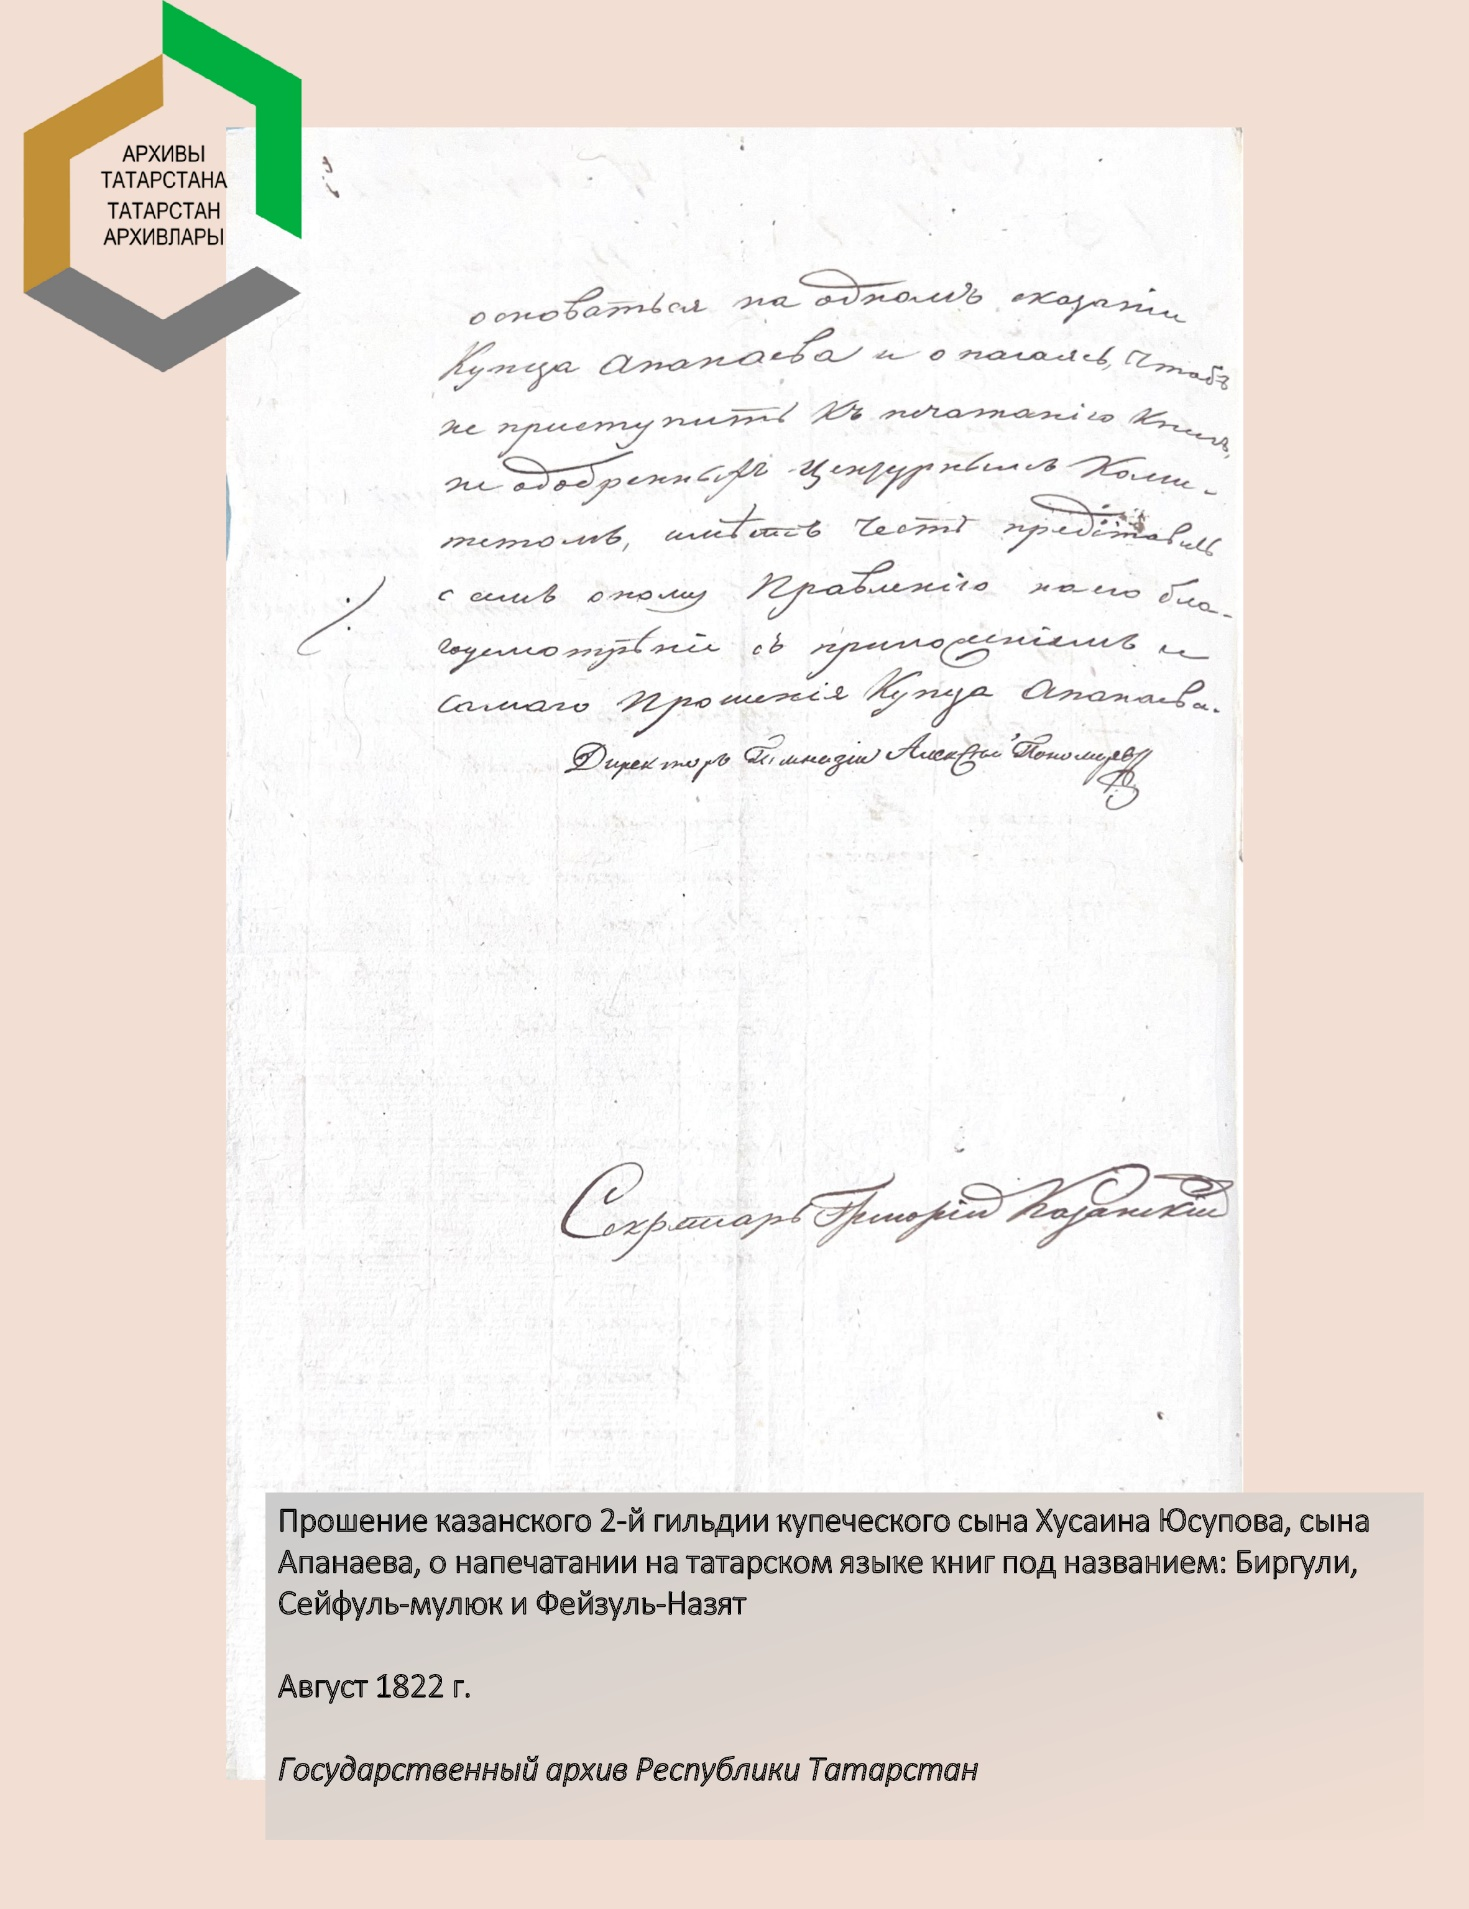 АРХИВЫ
ТАТАРСТАНА
ТАТАРСТАН
АРХИВЛАРЫ
основаться на одномъ сказаніи
Купца Апанаева и опасаясь, чтобъ
не приступить къ печатанію Книгъ,
не одобренныхъ Цензурнымъ Коми-
тетомъ, имѣетъ честь представить
о семъ оному Правленію на его бла-
гоусмотрѣніе съ приложеніемъ и
самаго Прошенія Купца Апанаева.
Директоръ Гимназіи Алексѣй
Секретарь Григорій Казанскій
Прошение казанского 2-й гильдии купеческого сына Хусаина Юсупова, сына
Апанаева, о напечатании на татарском языке книг под названием: Биргули,
Сейфуль-мулюк и Фейзуль-Назят
Август 1822 г.
Государственный архив Республики Татарстан